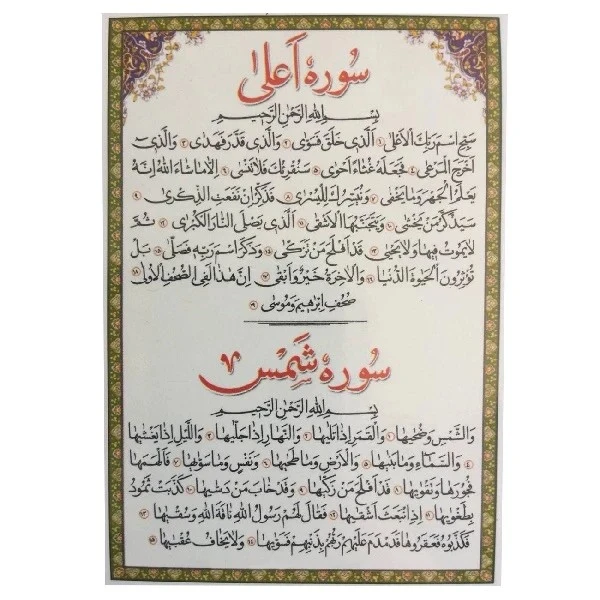 سوره اَعلیٰ
بِسْمِ اللهِ الرَّحْمٰنِ الرَّحیمِ
سَبِّحِ اسْمَ رَبِّكَ الْاَعْلٰى ۱ اَلَّذى خَلَقَ فَسَوّٰى ۲ وَالَّذى قَدَّرَ فَهَدٰى ۳ وَالَّذى
اَخْرَجَ الْمَرْعٰى ۴ فَجَعَلَهُ غُثٰاءً اَحْوٰى ۵ سَنُقْرِئُكَ فَلاتَنْسٰى ۶ اِلّا مٰا شٰاءَ اللهُ اِنَّهُ
یَعْلَمُ الْجَهْرَ وَمٰا یَخْفٰى ۷ وَنُیَسِّرُكَ لِلْیُسْرٰى ۸ فَذَكِّرْ اِنْ نَفَعَتِ الذِّكْرٰى ۹
سَیَذَّكَّرُ مَنْ یَخْشٰى ۱۰ وَیَتَجَنَّبُهَا الْاَشْقٰى ۱۱ اَلَّذى یَصْلَى النّٰارَ الْكُبْرٰى ۱۲ ثُمَّ
لایَمُوتُ فیهٰا وَلایَحْیٰى ۱۳ قَدْ اَفْلَحَ مَنْ تَزَكّٰى ۱۴ وَذَكَرَ اسْمَ رَبِّهِ فَصَلّٰى ۱۵ بَلْ
تُؤْثِرُونَ الْحَیٰوةَ الدُّنْیٰا ۱۶ وَالْاٰخِرَةُ خَیْرٌ وَاَبْقٰى ۱۷ اِنَّ هٰذٰا لَفِى الصُّحُفِ الْاُولٰى ۱۸
صُحُفِ اِبْرٰهیمَ وَمُوسٰى ۱۹
سوره شَمس ۷
بِسْمِ اللهِ الرَّحْمٰنِ الرَّحیمِ
وَالشَّمْسِ وَضُحٰیهٰا ۱ وَالْقَمَرِ اِذٰا تَلٰیهٰا ۲ وَالنَّهٰارِ اِذٰا جَلّٰیهٰا ۳ وَاللَّیْلِ اِذٰا یَغْشٰیهٰا
۴ وَالسَّمٰاءِ وَمٰا بَنٰیهٰا ۵ وَالْاَرْضِ وَمٰا طَحٰیهٰا ۶ وَنَفْسٍ وَمٰا سَوّٰیهٰا ۷ فَاَلْهَمَهٰا
فُجُورَهٰا وَتَقْوٰیهٰا ۸ قَدْ اَفْلَحَ مَنْ زَكّٰیهٰا ۹ وَقَدْ خٰابَ مَنْ دَسّٰیهٰا ۱۰ كَذَّبَتْ ثَمُودُ
بِطَغْوٰیهٰا ۱۱ اِذِ انْبَعَثَ اَشْقٰیهٰا ۱۲ فَقٰالَ لَهُمْ رَسُولُ اللهِ نٰاقَةَ اللهِ وَسُقْیٰهٰا ۱۳
فَكَذَّبُوهُ فَعَقَرُوهٰا فَدَمْدَمَ عَلَیْهِمْ رَبُّهُمْ بِذَنْبِهِمْ فَسَوّٰیهٰا ۱۴ وَلایَخٰافُ عُقْبٰیهٰا ۱۵